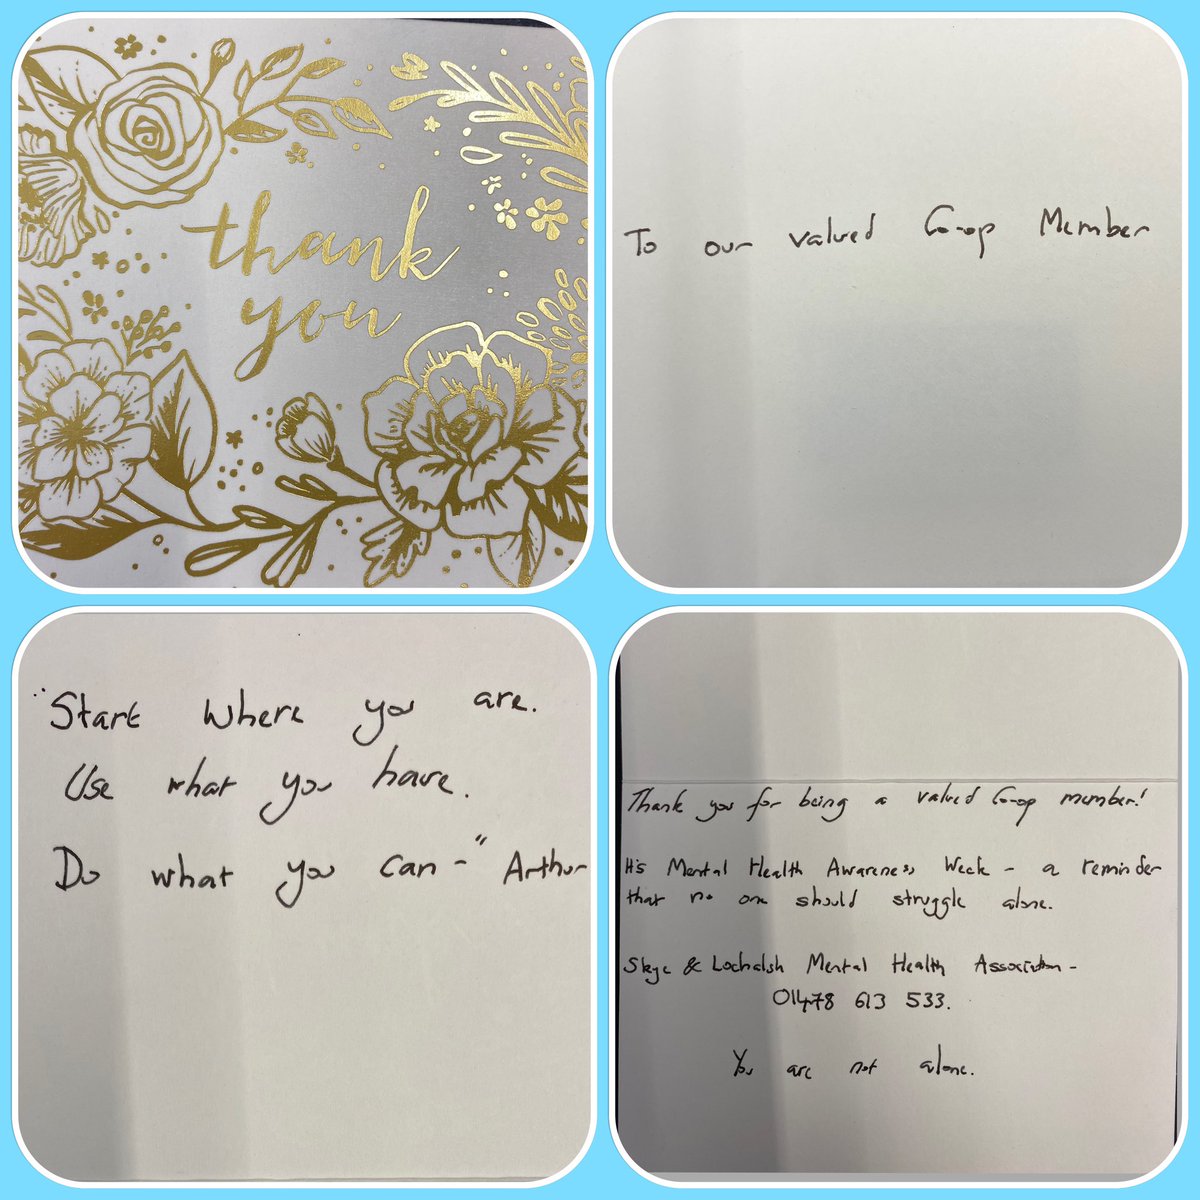 thank
you
To our valued Co-op Member
"Start where you are.
Use what you have.
Do what you can -" Arthur
Thank you for being a valued Co-op member!
It's Mental Health Awareness Week - a reminder
that no one should struggle alone.
Skye & Lochalsh Mental Health Association -
01478 613 533.
You are not alone.